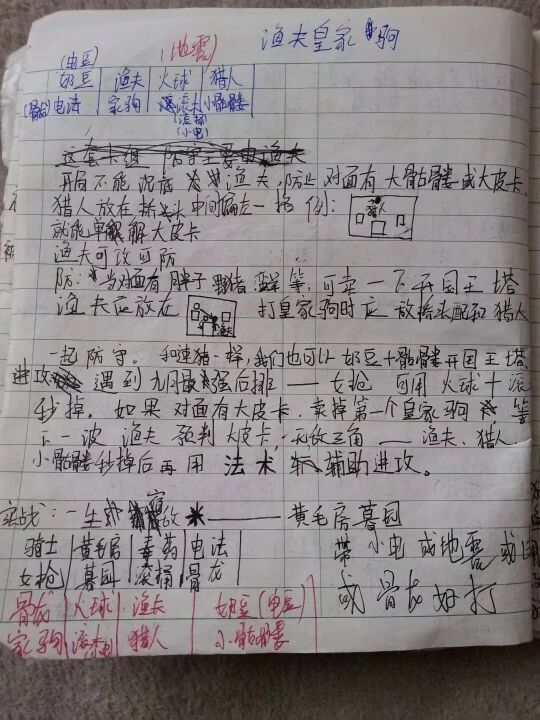 渔夫皇家驹
(电豆) (地震)
奶豆 渔夫 火球 猎人
(骨龙)电法 家驹 滚木 小骷髅
(滚桶)
(小电)
这套卡组 防守主要由渔夫
开局不能沉底 渔夫,防止对面有大骷髅或大皮卡
猎人放在桥头中间偏左一格 例: 猎人
就能单解大皮卡
渔夫可攻可防
防:当对面有胖子 野猪 等,可卖一下开国王塔
渔夫应放在 打皇家驹时应放抬头配和猎人
一起防守。和连猪一样,我们也可以 奶豆+骷髅开国王塔
进攻 遇到九月最强后排——女枪 可用火球+滚
秒掉。如果对面有大皮卡,卖掉第一个皇家驹 等
下一波 渔夫预判大皮卡,无敌三角——渔夫、猎人
小骷髅秒掉后再用 法术 辅助进攻。
实战:一生 放 ——黄毛房墓园
骑士 黄毛房 毒药 电法 带小电或地震或
女枪 墓园 滚桶 骨龙 或骨龙好打
骨龙 火球 渔夫 奶豆(电豆)
家驹 滚木 猎人 小骷髅